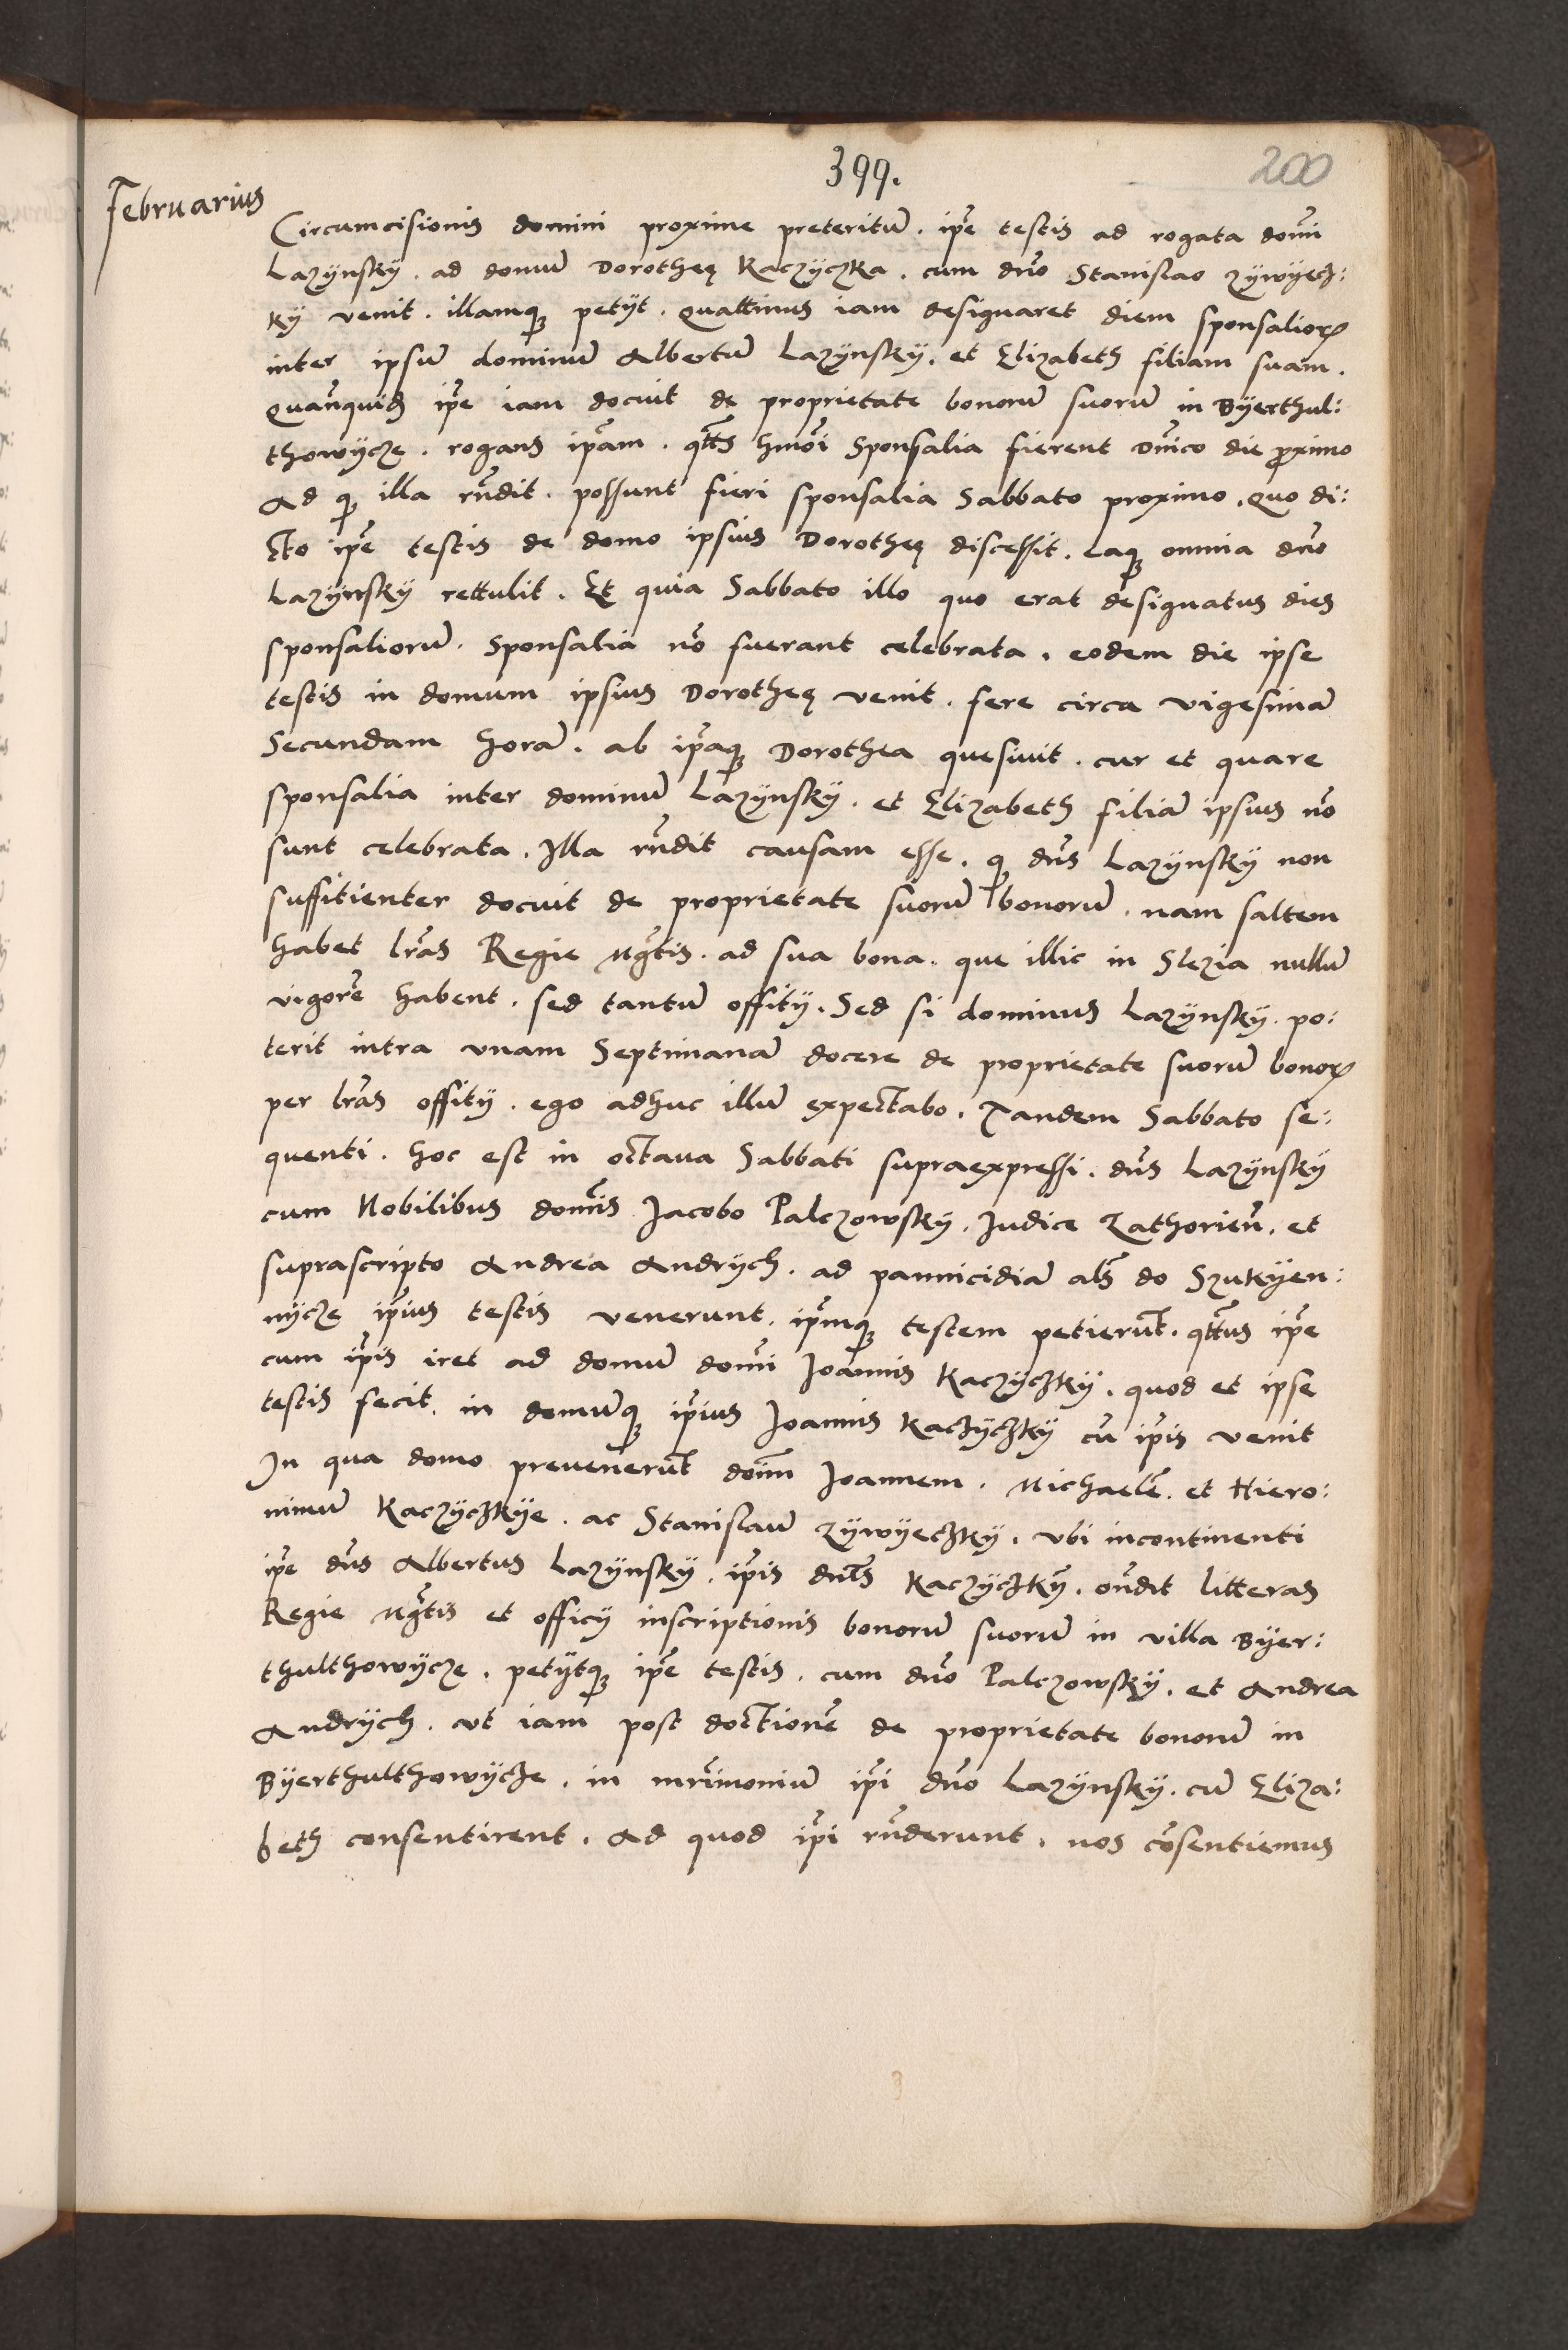 399.
200
Februarius
Circumcisionis domini proxime preteritū. ip̄e testis ad rogata domī
Lazÿnskÿ. ad domū Dorotheę Kaczÿczka. cum dn̄o Stanislao Zÿwÿecz:
kÿ venit. illamqȝ petÿt. quattinus iam designaret diem sponsalioꝝ
inter ipsū dominū Albertū Lazÿnskÿ. et Elizabeth filiam suam.
Quān̄quidē ip̄e iam docuit de proprietate bonorū suorū in Bÿerthul:
thowÿcze. rogans ip̄am. qtt̄s hmōi Sponsalia fierent Dn̄ico die proximo
Ad qȝ illa rn̄dit. possunt fieri sponsalia Sabbato proximo. quo di:
cto ip̄e testis de domo ipsius Dorotheę discessit. eaqȝ omnia dn̄o
Lazÿnskÿ rettulit. Et quia Sabbato illo quo erat designatus dies
sponsaliorū. Sponsalia nō fuerant celebrata. eodem die ipse
testis in domum ipsius Dorotheę venit. fere circa vigesimā
Secundam horā. ab ip̄aqȝ Dorothea quesiuit. cur et quare
sponsalia inter dominū Lazÿnskÿ. et Elizabeth filiā ipsius nō
sunt celebrata. Illa rn̄dit causam esse. qȝ dn̄s Lazÿnskÿ non
suffitienter docuit de proprietate suorū bonorū. nam saltem
habet lr̄as Regie Mḡtis. ad sua bona. que illic in Slezia nullū
vigorē habent. sed tantū offitÿ. Sed si dominus Lazÿnskÿ. po:
terit intra vnam Septimanā docere de proprietate suorū bonoꝝ
per lr̄as offitÿ. ego adhuc illū expectabo. Tandem Sabbato se:
quenti. hoc est in octaua Sabbati supraexpressi. dn̄s Lazÿnskÿ
cum Nobilibus domīs Jacobo Palczowskÿ. Judice Zathorieñ. et
suprascripto Andrea Andrÿch. ad pannicidiā als̄ do Szukÿen:
nÿcze ip̄ius testis venerunt. ip̄mqȝ testem petierūt. qtt̄us ip̄e
cum ip̄is iret ad domū domī Joannis Kaczÿczkÿ. quod et ipse
testis fecit. in domūqȝ ip̄ius Joannis Kaczÿczkÿ cū ip̄is venit
In qua domo preuenerūt doīm Joannem. Michaelē. et Hiero:
nimū Kaczÿczkÿe. ac Stanislaū Zÿwÿeczkÿ. vbi incontinenti
ip̄e dn̄s Albertus Lazÿnskÿ. ip̄is dn̄is Kaczÿczkÿ. on̄dit litteras
Regie Mḡtis et officÿ inscriptionis bonorū suorū in villa Bÿer:
thulthowÿcze. petÿtqȝ ip̄e testis. cum dn̄o Palczowskÿ. et Andrea
Andrÿch. vt iam post doctionē de proprietate bonorū in
Bÿerthulthowÿcze. in mr̄imoniū ip̄i dn̄o Lazÿnskÿ. cū Eliza:
beth consentirent. Ad quod ip̄i rn̄derunt. nos cōsentiemus